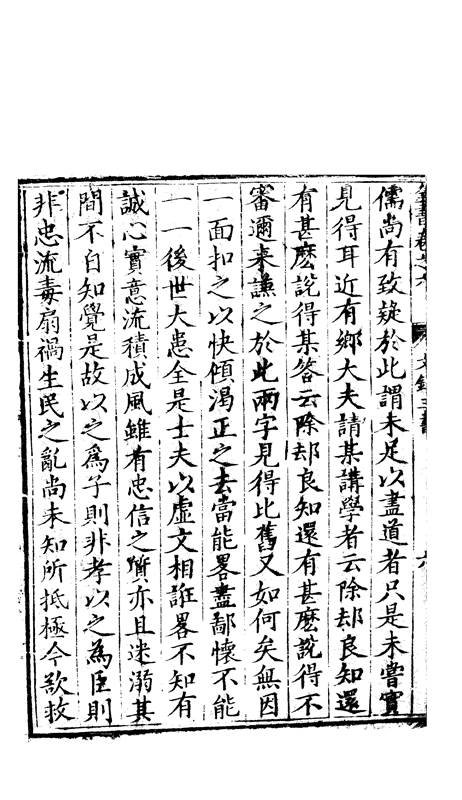 全書卷之六　文錄三書　六
儒尚有致疑於此謂未足以盡道者只是未嘗實
見得耳近有鄉大夫請某講學者云除却良知還
有甚麽說得某答云除却良知還有甚麽說得不
審邇來謙之於此兩字見得比舊又如何矣無因
一面扣之以快傾渴正之去當能畧盡鄙懷不能
一一後世大患全是士夫以虛文相誑畧不知有
誠心實意流積成風雖有忠信之質亦且迷溺其
間不自知覺是故以之爲子則非孝以之爲臣則
非忠流毒扇禍生民之亂尚未知所抵極今欲救